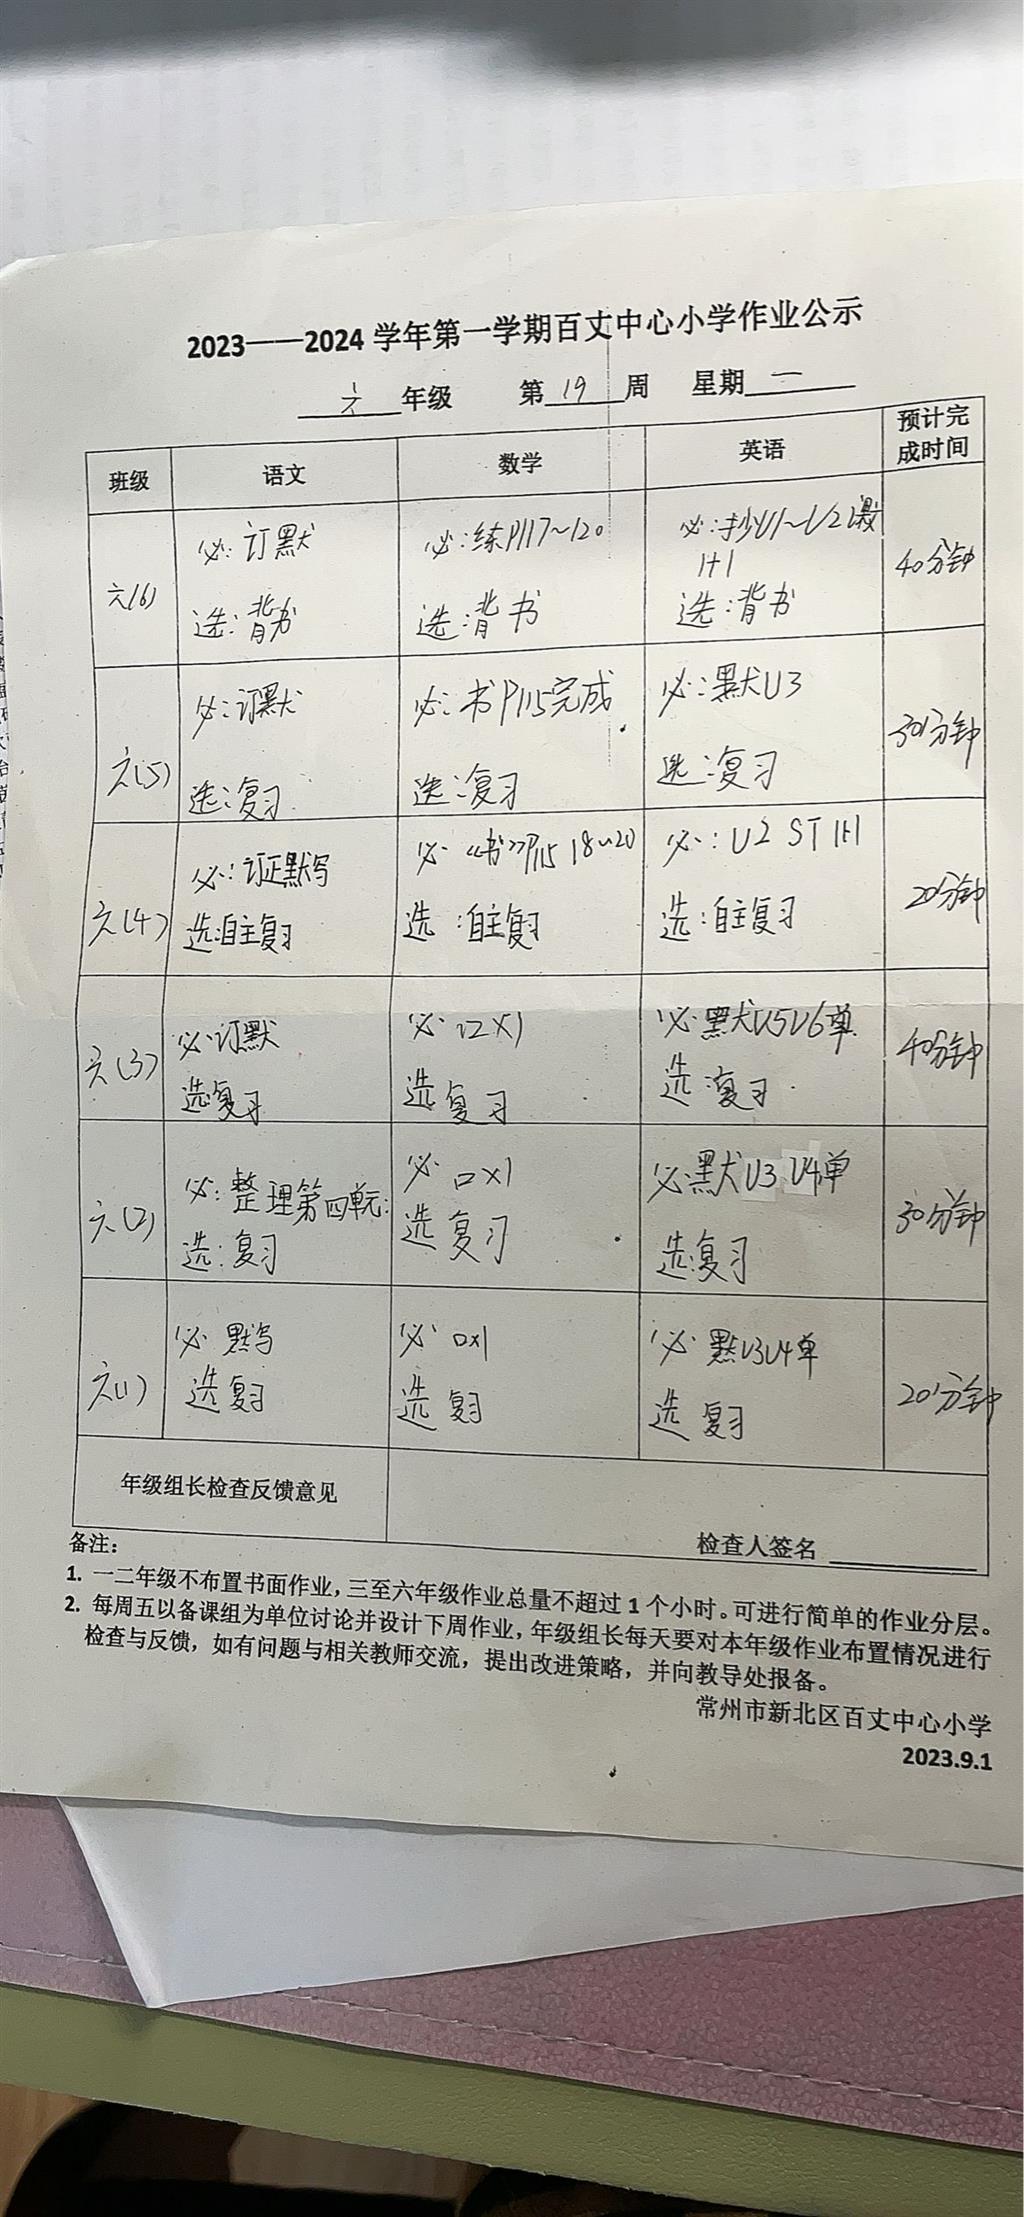 2023——2024 学年第一学期百丈中心小学作业公示
六 年级 第 19 周 星期 一
班级 语文 数学 英语 预计完成时间
六(6) 必:订默 必:练P117~120 必:抄U1~U2课文 1+1 40分钟
选:背书 选:背书 选:背书
六(5) 必:订默 必:书P115完成 必:默U3 30分钟
选:复习 选:复习 选:复习
六(4) 必:订正默写 必 《书》P115 18~20 必:U2 ST 1+1 20分钟
选:自主复习 选:自主复习 选:自主复习
六(3) 必 订默 必 口2×1 必 默U5U6单 40分钟
选复习 选 复习 选:复习
六(2) 必:整理第四单元 必 口×1 必 默U3 U4单 30分钟
选:复习 选 复习 选:复习
六(1) 必 默写 必 口×1 必 默U3U4单 20分钟
选 复习 选 复习 选 复习
年级组长检查反馈意见 检查人签名
备注:
1. 一二年级不布置书面作业,三至六年级作业总量不超过 1 个小时。可进行简单的作业分层。
2. 每周五以备课组为单位讨论并设计下周作业,年级组长每天要对本年级作业布置情况进行
检查与反馈,如有问题与相关教师交流,提出改进策略,并向教导处报备。
常州市新北区百丈中心小学
2023.9.1